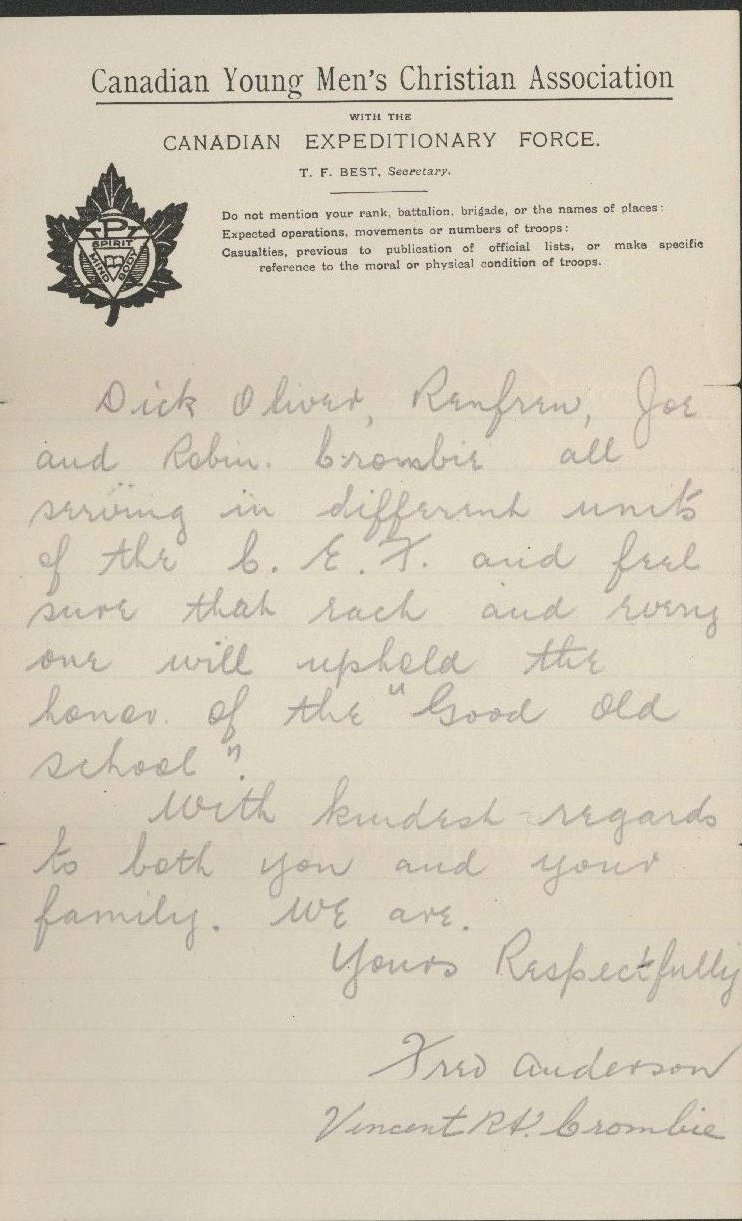 Canadian Young Men's Christian Association
WITH THE
CANADIAN EXPEDITIONARY FORCE.
T. F. BEST, Secretary.
Do not mention your rank, battalion, brigade, or the names of places:
Expected operations, movements or numbers of troops:
Casualties, previous to publication of official lists, or make specific
reference to the moral or physical condition of troops.
P
SPIRIT
MIND
BODY
Dick Oliver, Renfrew, Joe
and Robin. Crombie all
serving in different units
of the C. E. F. and feel
sure that each and every
one will uphold the
honor. of the "Good Old
School".
With kindest regards
to both you and your
family. We are.
Yours Respectfully
Fred Anderson
Vincent R H. Crombie